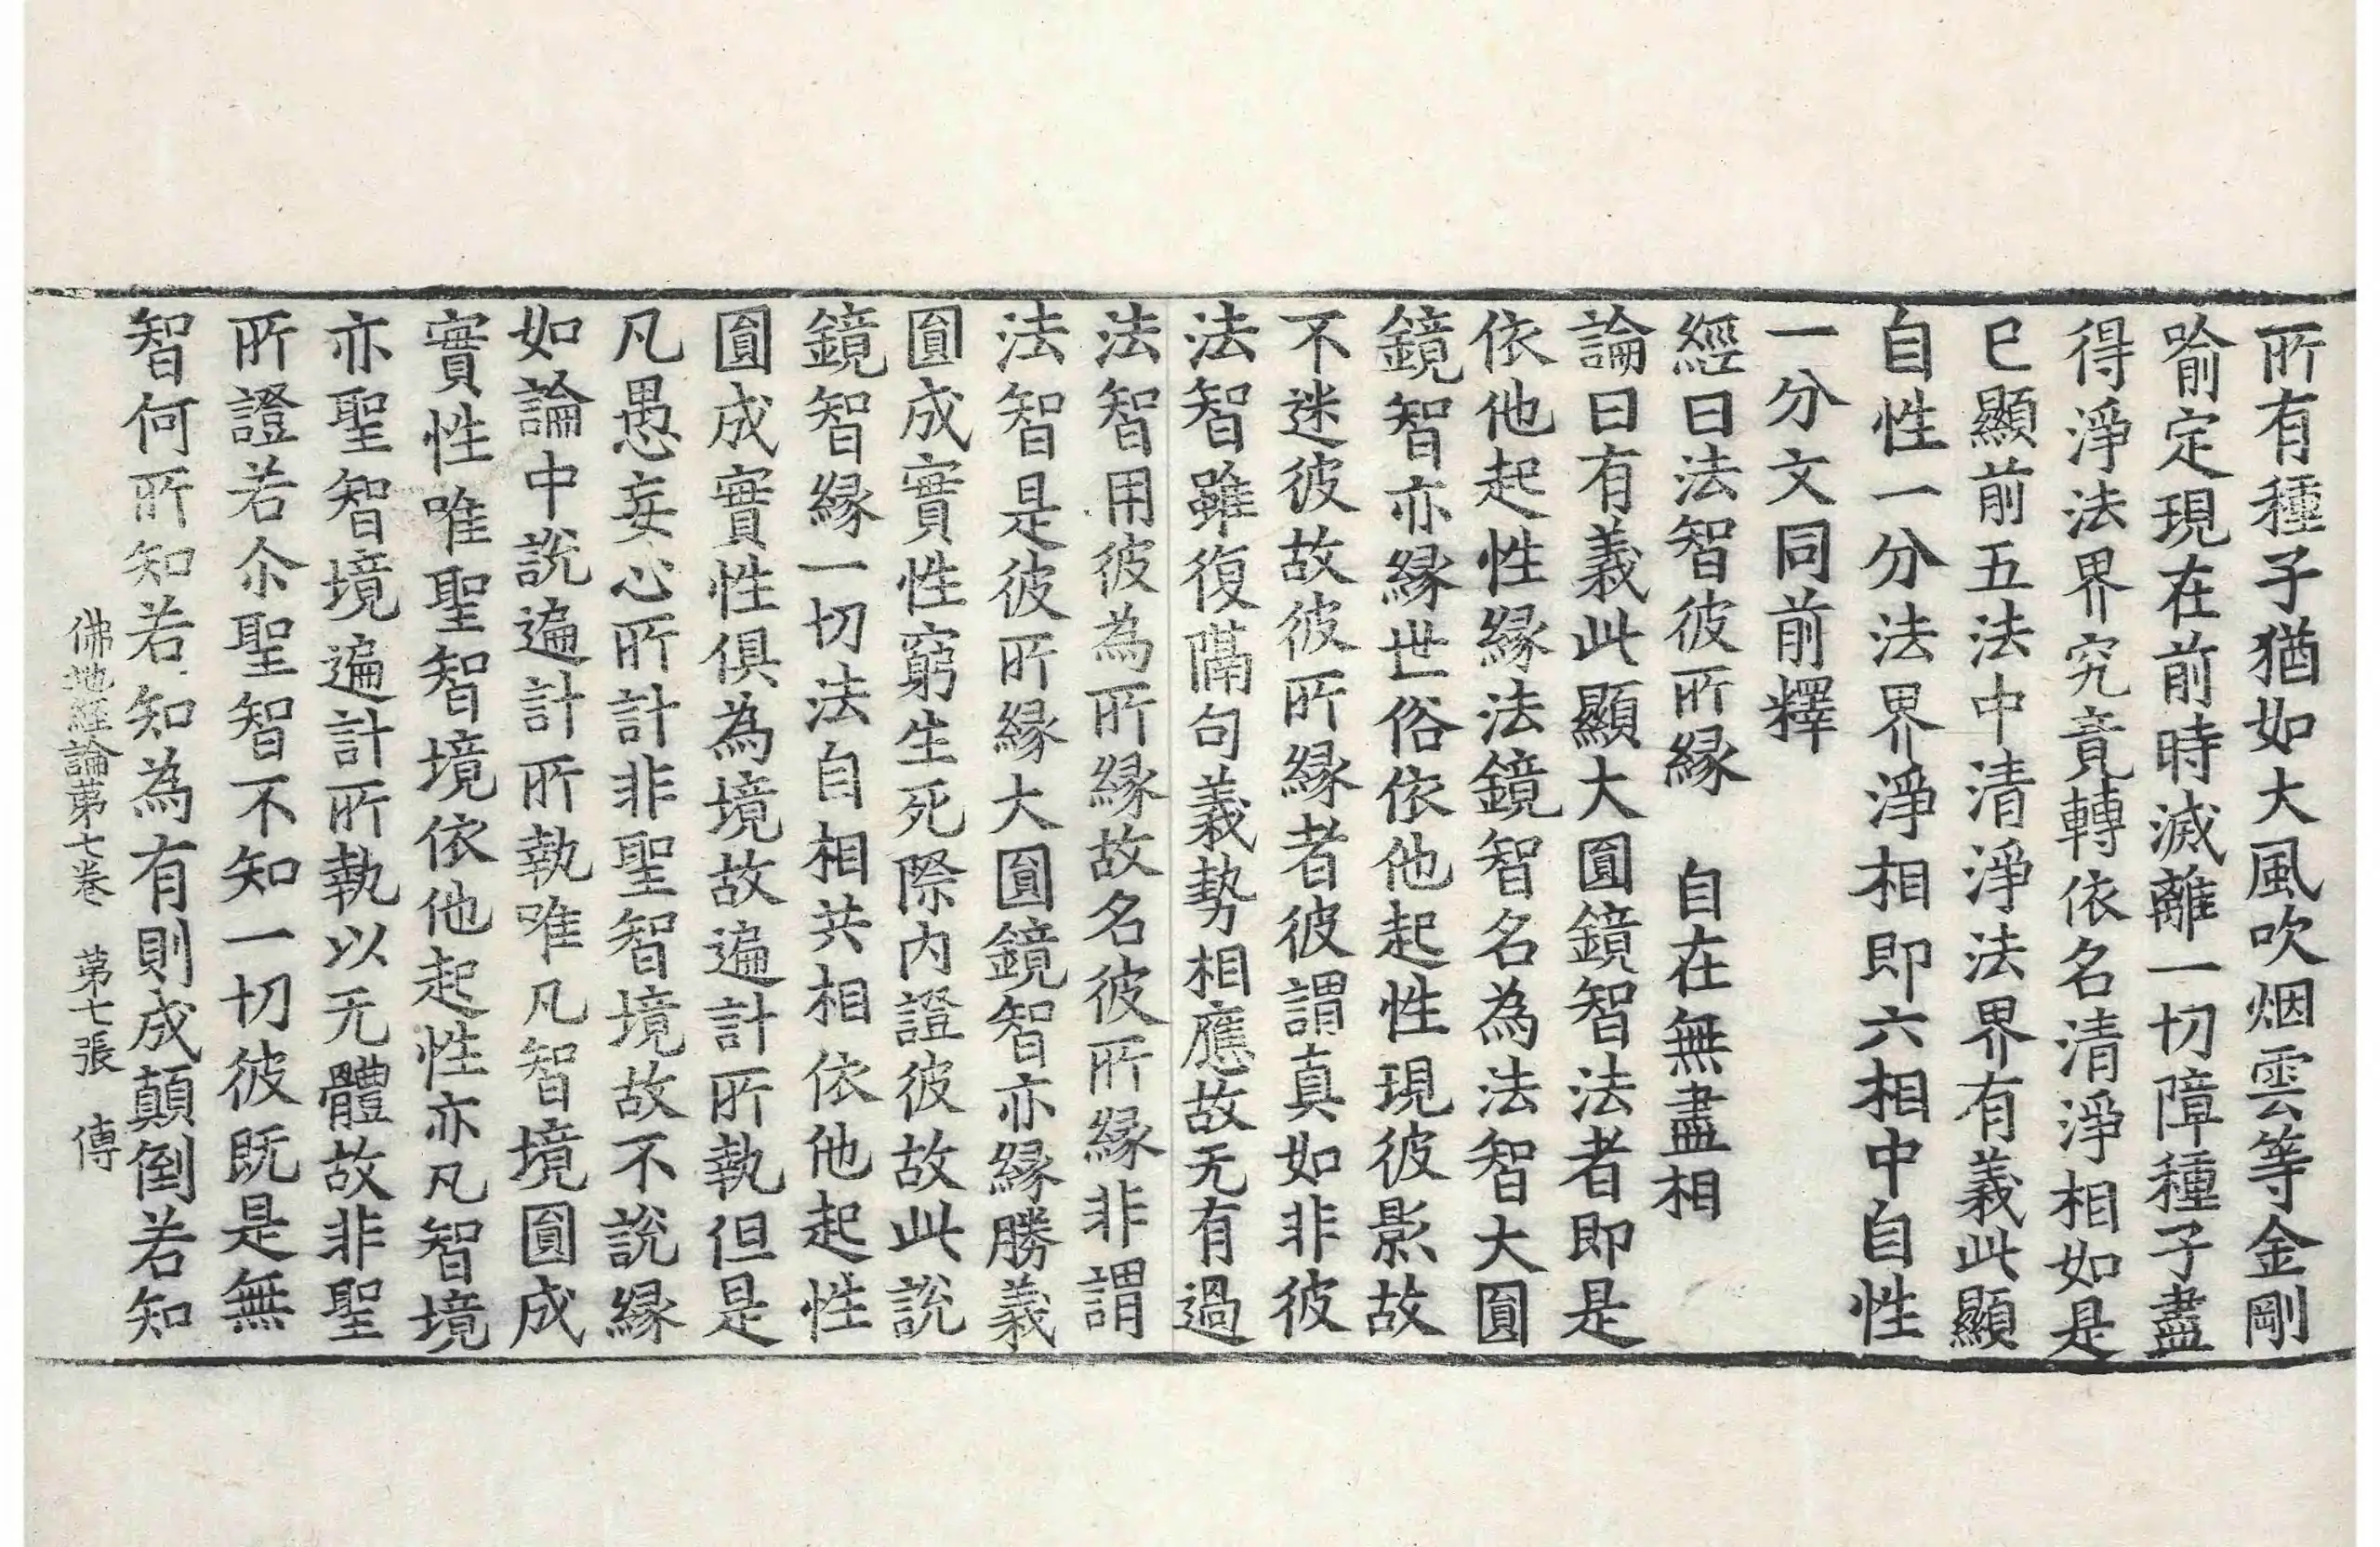 所有種子猶如大風吹烟雲等金剛
喻定現在前時滅離一切障種子盡
得淨法界究竟轉依名清淨相如是
已顯前五法中清淨法界有義此顯
自性一分法界淨相即六相中自性
一分文同前釋
經曰法智彼所緣　自在無盡相
論曰有義此顯大圓鏡智法者即是
依他起性緣法鏡智名為法智大圓
鏡智亦緣世俗依他起性現彼影故
不迷彼故彼所緣者彼謂真如非彼
法智雖復隔句義勢相應故无有過
法智用彼為所緣故名彼所緣非謂
法智是彼所緣大圓鏡智亦緣勝義
圓成實性窮生死際內證彼故此說
鏡智緣一切法自相共相依他起性
圓成實性俱為境故遍計所執但是
凡愚妄心所計非聖智境故不說緣
如論中說遍計所執唯凡智境圓成
實性唯聖智境依他起性亦凡智境
亦聖智境遍計所執以无體故非聖
所證若尒聖智不知一切彼既是無
智何所知若知為有則成顛倒若知
佛地經論第七卷　第七張　傳